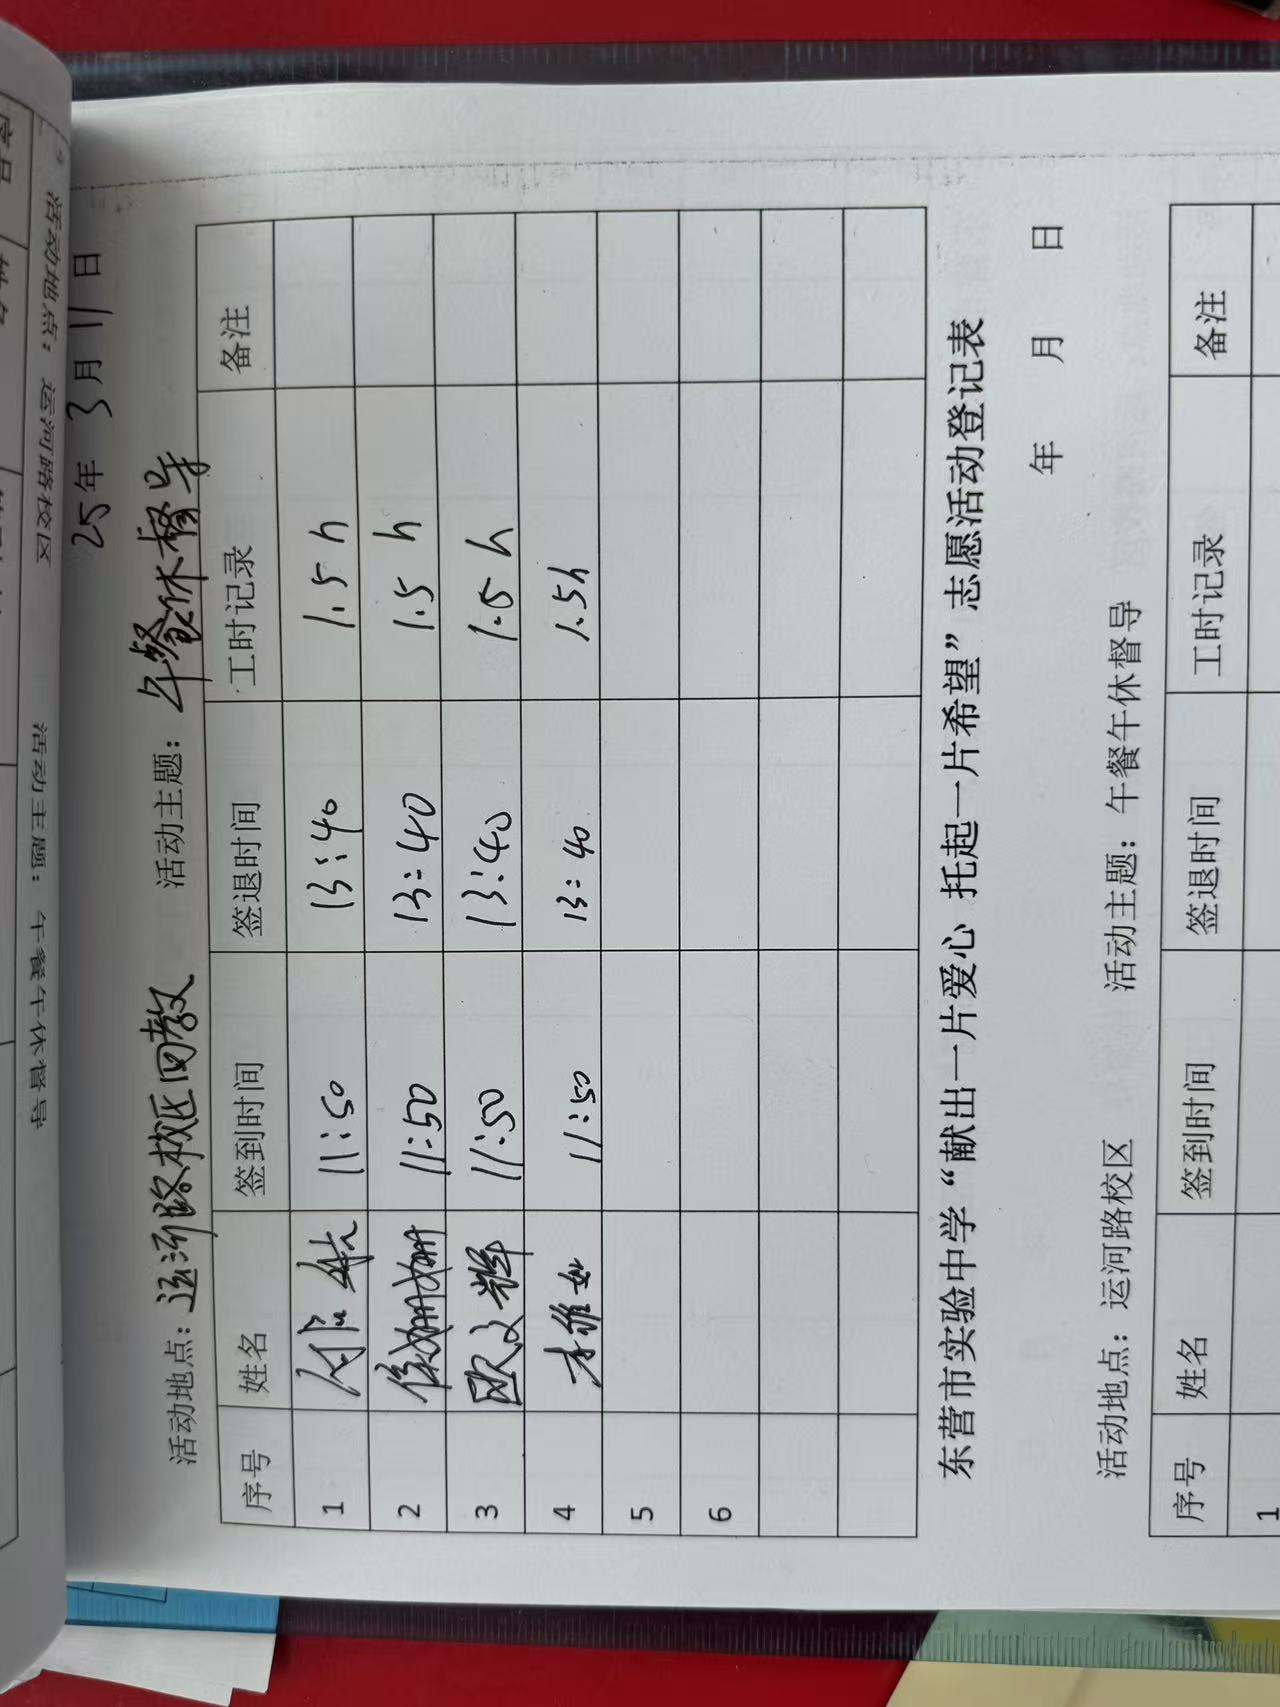 活动地点：运河路校区
活动主题：午餐午休督导
25年 3月 11日
活动地点：运河路校区 活动主题：午餐休督导
序号 姓名 签到时间 签退时间 工时记录 备注
1 11:50 13:40 1.5h
2 侯姗姗 11:50 13:40 1.5h
3 欧文辉 11:50 13:40 1.5h
4 李维 11:50 13:40 1.5h
5
6
东营市实验中学“献出一片爱心 托起一片希望”志愿活动登记表
年 月 日
活动地点：运河路校区 活动主题：午餐午休督导
序号 姓名 签到时间 签退时间 工时记录 备注
1